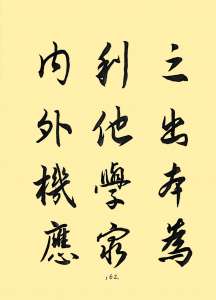 之出本為
利他學
內外機應
162.